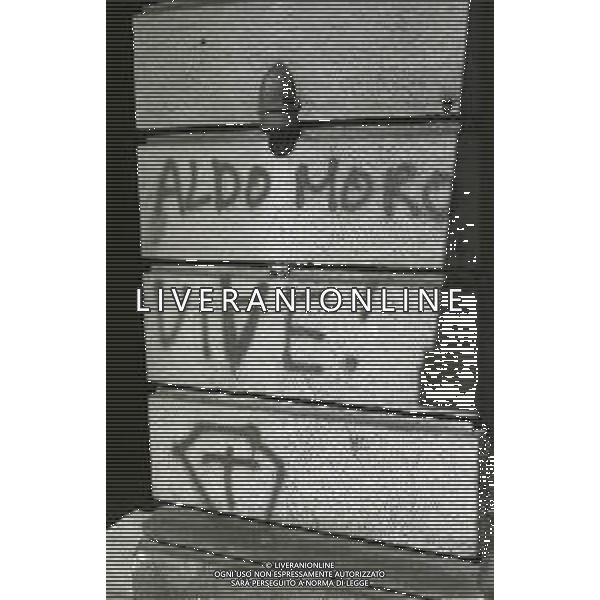 ALDO MORO
LIVERANIONLINE
VIVE!
© LIVERANIONLINE
OGNI USO NON ESPRESSAMENTE AUTORIZZATO
SARÀ PERSEGUITO A NORMA DI LEGGE